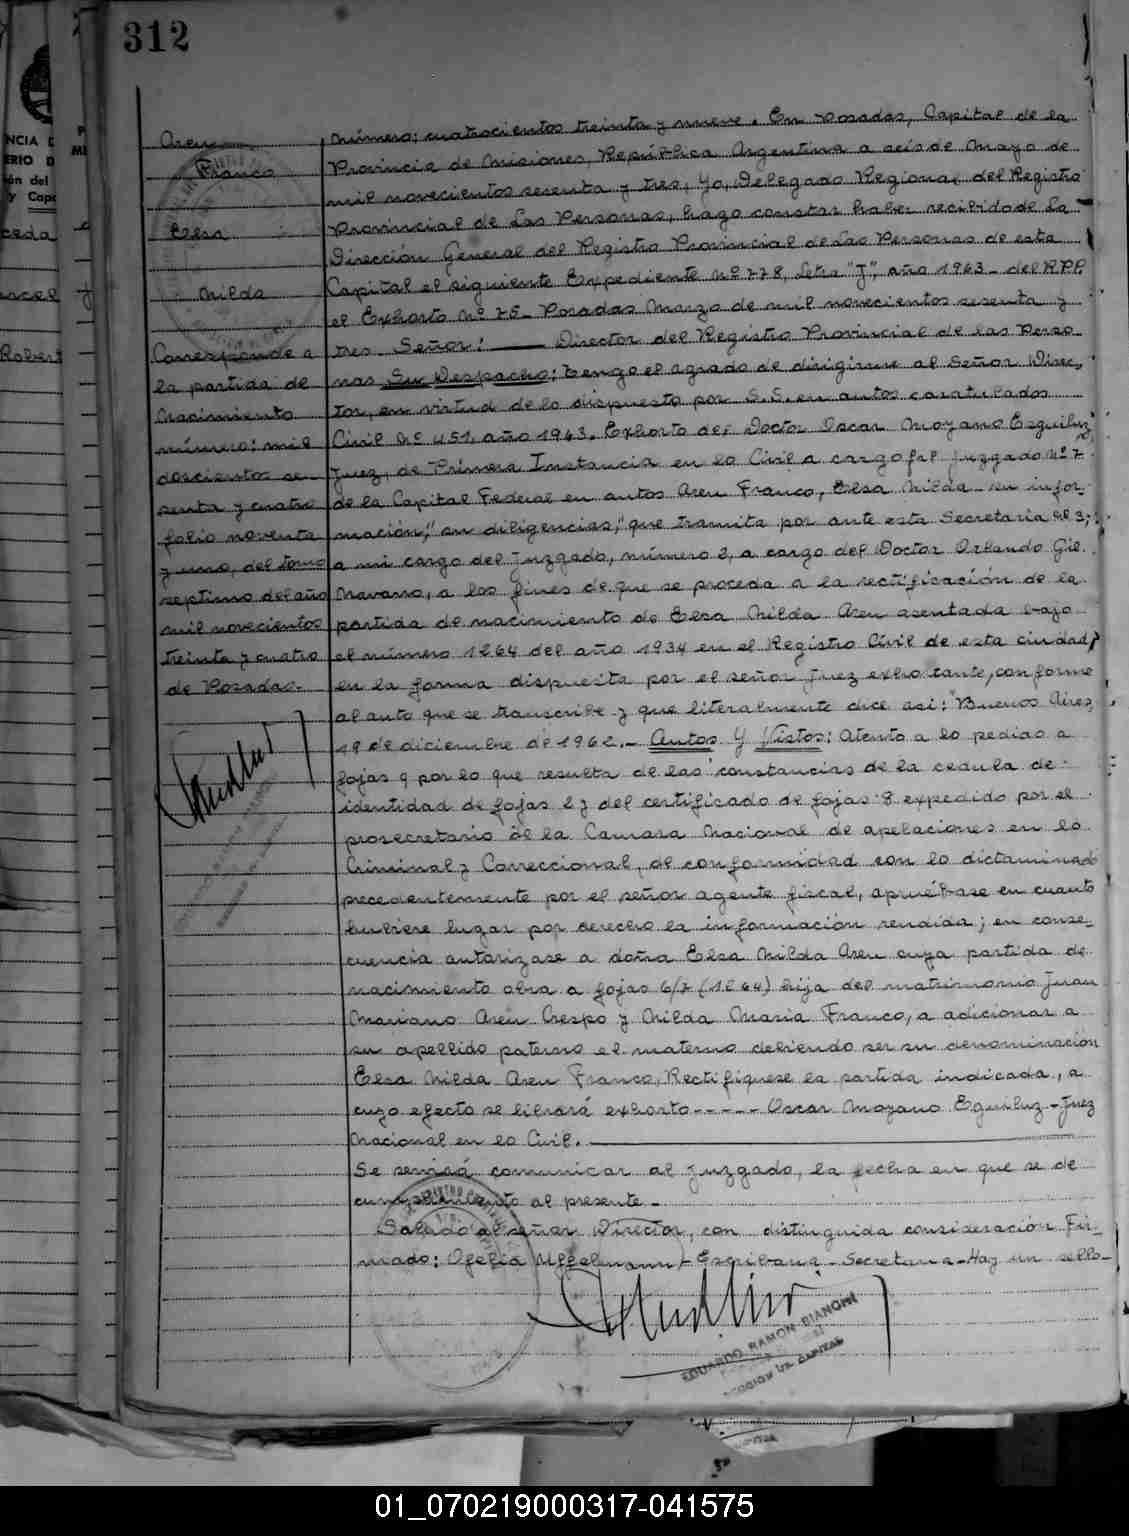 312
Areu
Franco
Elsa
Nilda
Corresponde a
la partida de
Nacimiento
número: mil
doscientos se-
senta y cuatro
folio noventa
y uno, del tomo
septimo del año
mil novecientos
treinta y cuatro
de Posadas.-
Número: cuatrocientos treinta y nueve. En Posadas, Capital de la
Provincia de Misiones, República Argentina a seis de Mayo de
mil novecientos sesenta y tres, Yo, Delegado Regional del Registro
Provincial de Las Personas, hago constar haber recibido de La
Dirección General del Registro Provincial de Las Personas de esta
Capital el siguiente Expediente Nº 778, Letra "J", año 1963 - del R.P.P.
el Exhorto Nº 75 - Posadas Marzo de mil novecientos sesenta y
tres Señor: Director del Registro Provincial de las Perso-
nas Su Despacho: Tengo el agrado de dirigirme al Señor Direc-
tor, en virtud de lo dispuesto por S.S. en autos caratulados
Civil Nº 451, año 1963. Exhorto del Doctor Oscar Moyano Eguiluz,
Juez, de Primera Instancia en lo Civil a cargo del Juzgado Nº 7
de la Capital Federal en autos Areu Franco, Elsa Nilda - en infor-
mación," su diligencias," que tramita por ante esta Secretaría Nº 3,
a mi cargo del Juzgado, número 2, a cargo del Doctor Orlando Gil
Navarro, a los fines de que se proceda a la rectificación de la
partida de nacimiento de Elsa Nilda Areu asentada bajo
el número 1264 del año 1934 en el Registro Civil de esta ciudad,
en la forma dispuesta por el señor Juez exhortante, conforme
al auto que se transcribe y que literalmente dice asi: "Buenos Aires,
19 de diciembre de 1962.- Autos Y Vistos: Atento a lo pedido a
fojas 9 por lo que resulta de las constancias de la cedula de
identidad de fojas 2 y del certificado de fojas 8 expedido por el
prosecretario de la Camara Nacional de apelaciones en lo
Criminal y Correccional, de conformidad con lo dictaminado
precedentemente por el señor agente fiscal, apruébase en cuanto
hubiere lugar por derecho la información rendida; en conse-
cuencia autorizase a doña Elsa Nilda Areu cuya partida de
nacimiento obra a fojas 6/7 (1264) hija del matrimonio Juan
Mariano Areu Crespo y Nilda Maria Franco, a adicionar a
su apellido paterno el materno debiendo ser su denominación
Elsa Nilda Areu Franco, Rectifiquese la partida indicada, a
cuyo efecto se librará exhorto----- Oscar Moyano Eguiluz - Juez
Nacional en lo Civil.
Se servirá comunicar al Juzgado, la fecha en que se de
cumplimiento al presente -
Saludo al señor Director, con distinguida consideración Fir-
mado: Ofelia Uffelmann - Escribana - Secretaria - Hay un sello-
EDUARDO RAMON BIANCHI
01_070219000317-041575